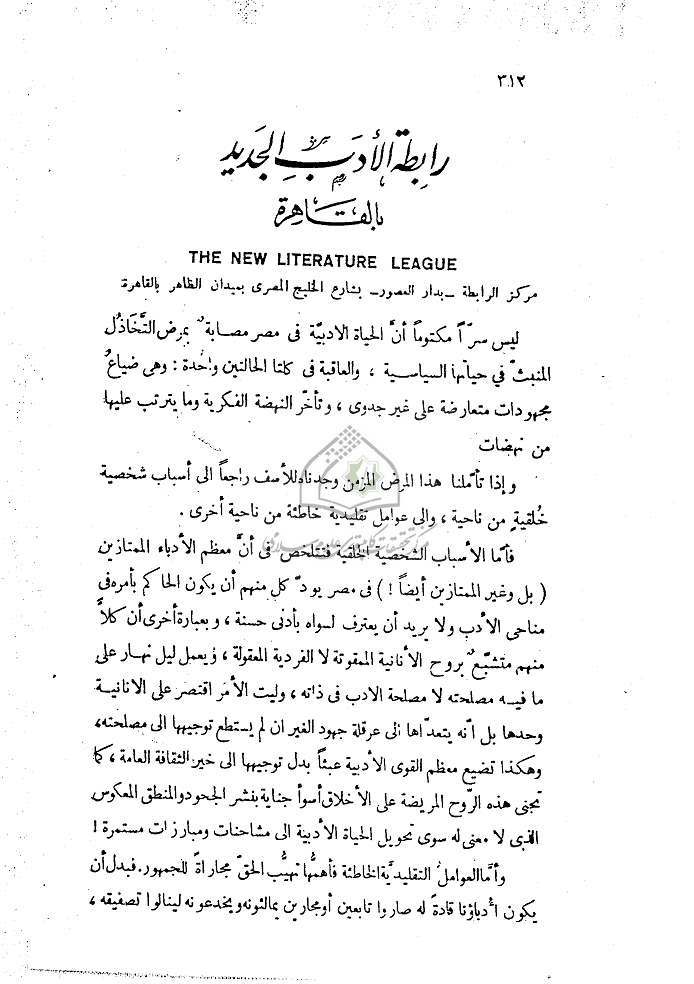 ٣١٢
رابطة الأدب الجديد
بالقاهرة
THE NEW LITERATURE LEAGUE
مركز الرابطة ـ بدار العصور ـ بشارع الخليج المصرى بميدان الظاهر بالقاهرة
ليس سرّاً مكتوماً أنَّ الحياة الادبيّة فى مصر مصابة بمرض التَّخاذُل
المنبثّ في حياتها السياسية ، والعاقبة فى كلتا الحالتين واحدة : وهى ضياعُ
مجهودات متعارضة على غير جدوى ، وتأخّر النهضة الفكرية وما يترتب عليها
من نهضات
وإذا تأمّلنا هذا المرض المزمن وجدناه للأسف راجعاً الى أسباب شخصية
خُلقيةٍ من ناحية ، والى عوامل تقليدية خاطئة من ناحية أخرى .
فأما الأسباب الشخصية الخلقية فتتلخص فى أنَّ معظم الأدباء الممتازين
( بل وغير الممتازين أيضاً ! ) فى مصر يودّ كل منهم أن يكون الحاكم بأمره فى
مناحى الأدب ولا يريد أن يعترف لسواه بأدنى حسنة ، وبعبارة أخرى أن كلاًّ
منهم متشبّع بروح الأنانية الممقوتة لا الفردية المعقولة ، ويعمل ليل نهار على
ما فيه مصلحته لا مصلحة الادب فى ذاته ، وليت الأمر اقتصر على الانانية
وحدها بل انّه يتعدّاها الى عرقلة جهود الغير ان لم يستطع توجيهها الى مصلحته،
وهكذا تضيع معظم القوى الأدبية عبثاً بدل توجيهها الى خير الثقافة العامة ، كما
تجنى هذه الرّوح المريضة على الأخلاق أسوأ جناية بنشر الجحود والمنطق المعكوس
الذى لا معنى له سوى تحويل الحياة الأدبية الى مشاحنات ومبارزات مستمرة !
وأمَّا العواملُ التقليديَّة الخاطئة فأهمُّها تهيُّب الحقّ مجاراةً للجمهور. فبدل أن
يكون أدباؤنا قادةً له صاروا تابعين أو مجارين يمالئونه ويخدعونه لينالوا تصفيقه ،